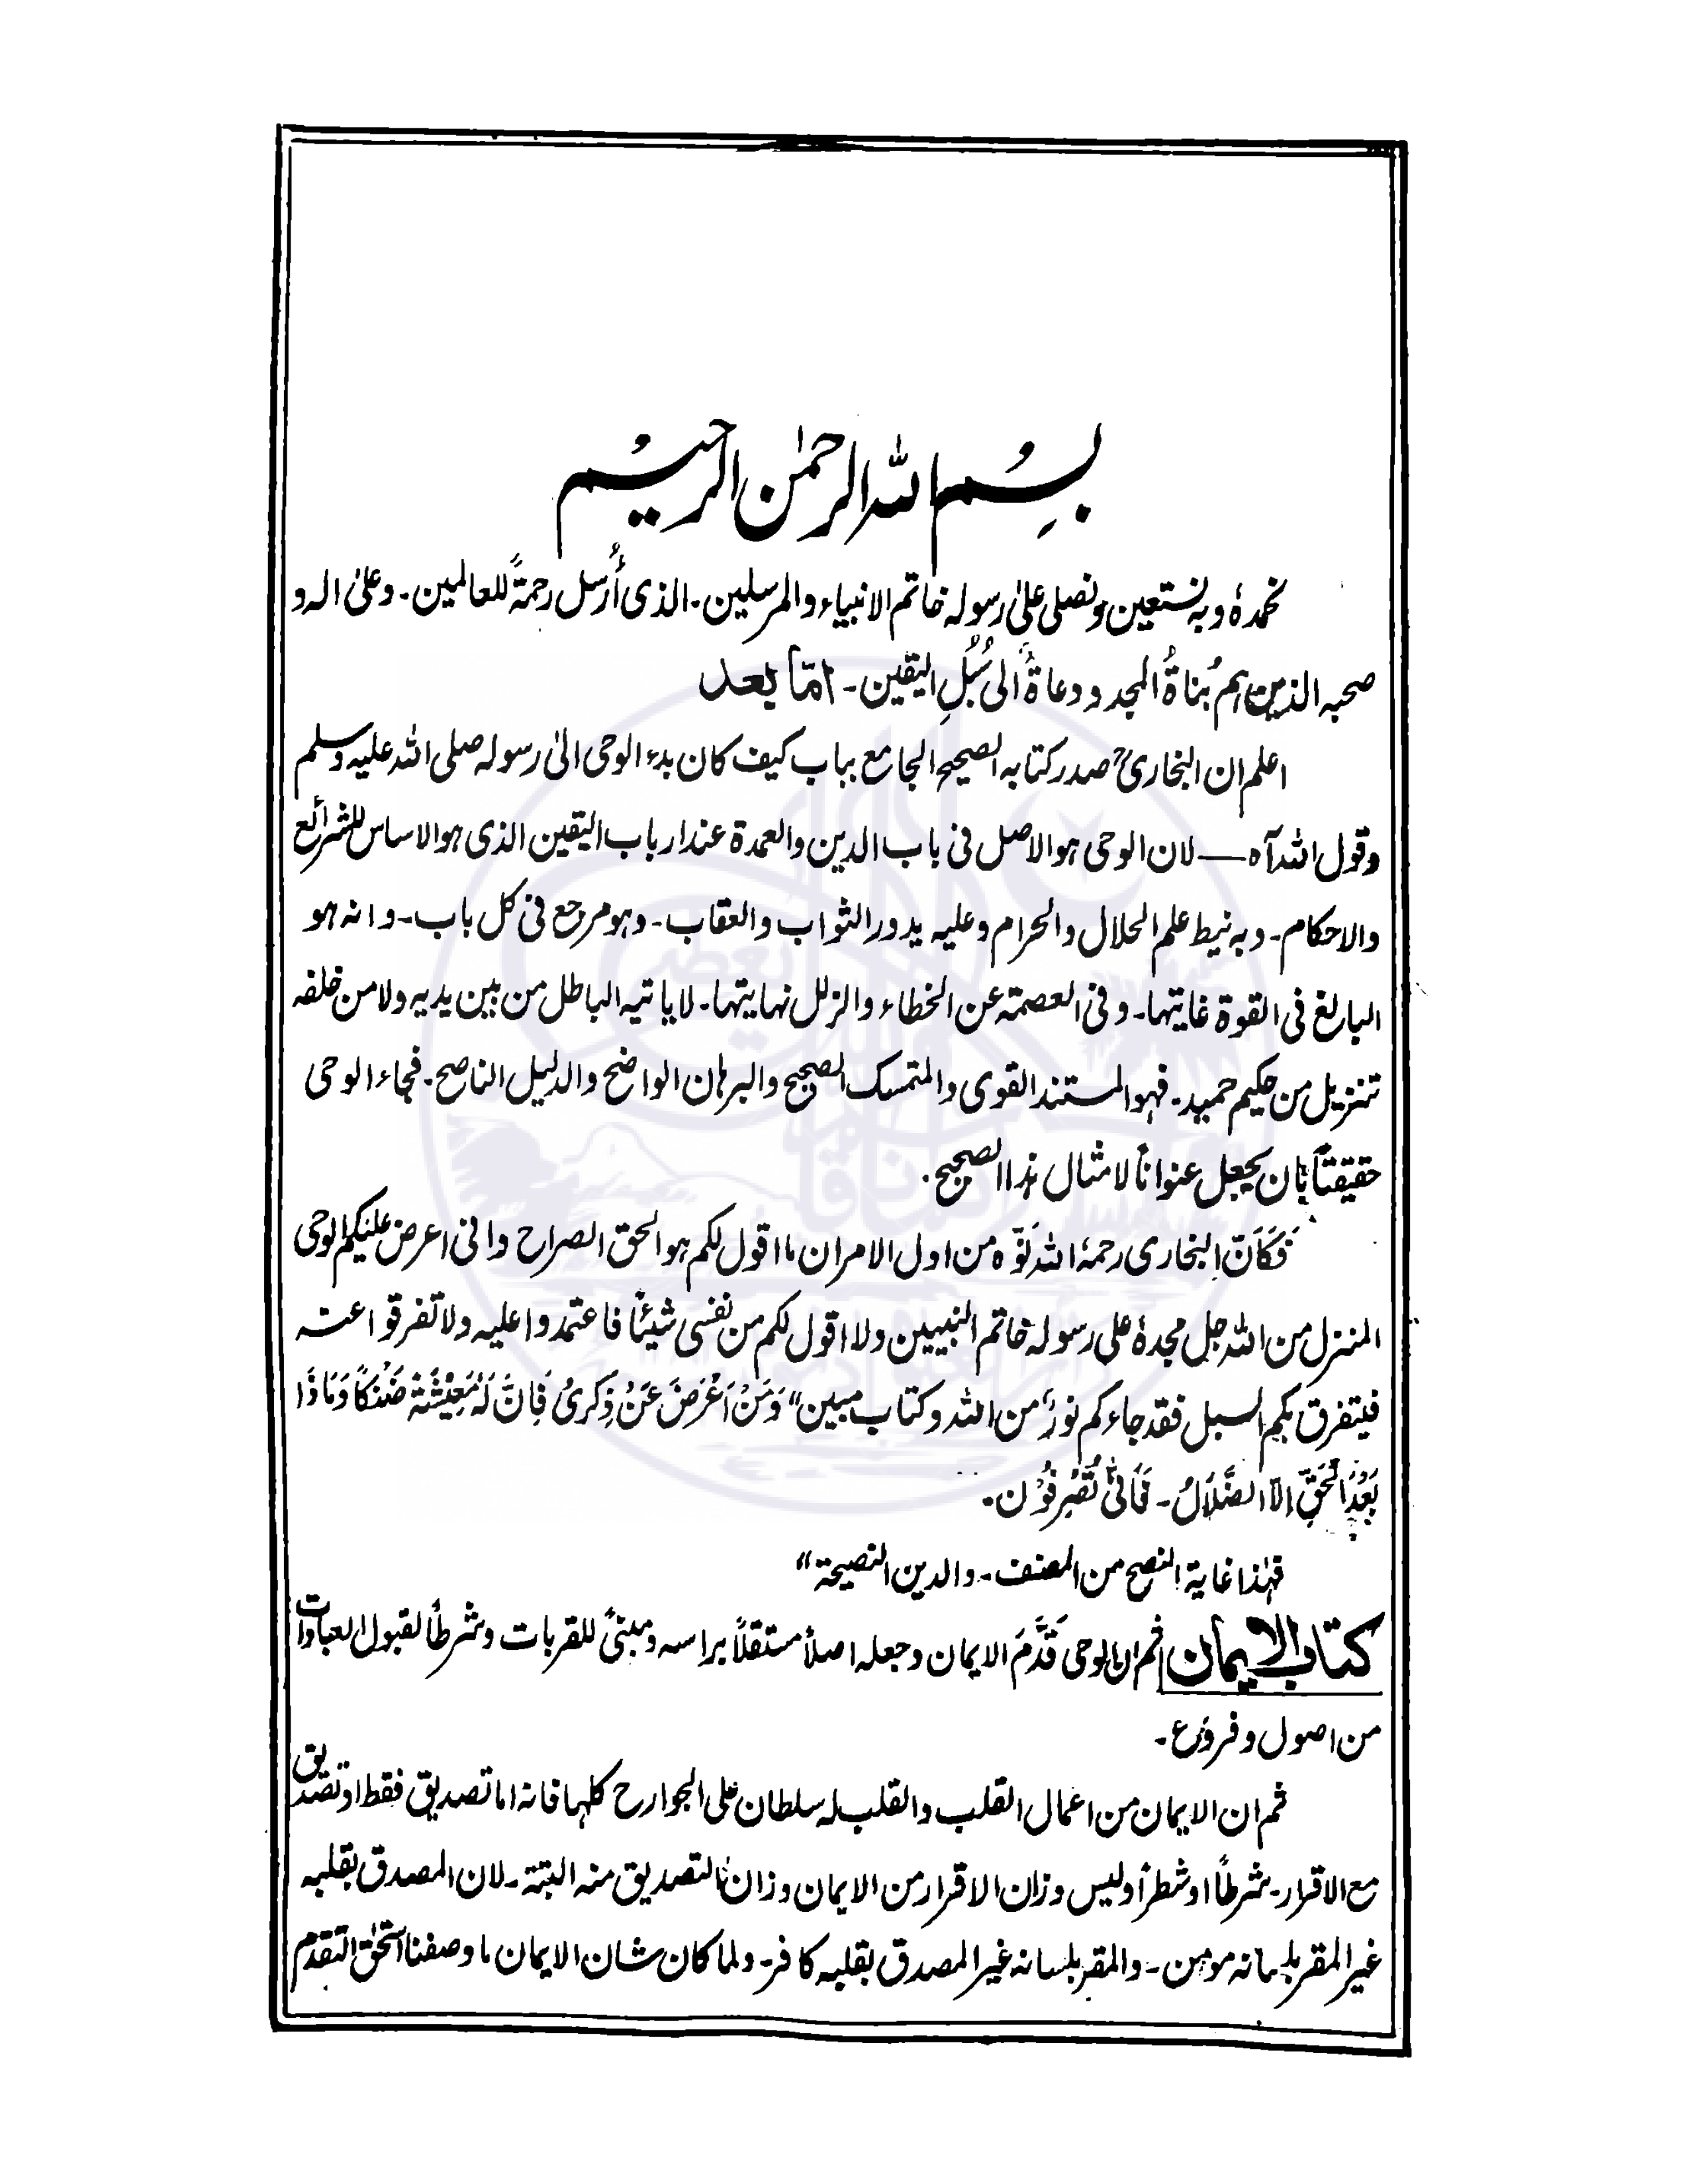 بِسْمِ اللہ الرحمٰن الرحیم
نحمدہٗ و بہٖ نستعین ونصلی علیٰ رسولہ خاتم الانبیاء والمرسلین۔ الذی أُرسل رحمۃً للعالمین۔ وعلیٰ الہ و
صحبہ الذین ہم بُناۃُ المجد و دعاۃٌ الیٰ سُبُلِ الیقین۔ امّا بعد
اعلم ان البخاریؒ صدر کتابہ الصحیح الجامع بباب کیف کان بدء الوحی الیٰ رسولہ صلی اللہ علیہ وسلم
وقول اللہ آہ — لان الوحی ہو الاصل فی باب الدین والعمدۃ عند ارباب الیقین الذی ہو الاساس للشرائع
والاحکام۔ و بہٖ نیط علم الحلال والحرام وعلیہ یدور الثواب والعقاب۔ وہو مرجع فی کل باب۔ وانہ ہو
البالغ فی القوۃ غایتہا۔ وفی العصمۃ عن الخطاء والزلل نہایتہا۔ لا یاتیہ الباطل من بین یدیہ ولا من خلفہ
تنزیل من حکیم حمید۔ فہو المستند القوی والمتمسک الصحیح والبرہان الواضح والدلیل الناصح۔ فجاء الوحی
حقیقتاً بان یجعل عنواناً لامثال ہذا الصحیح۔
فَکَاَنّ البخاری رحمۃ اللہ نَوّہ من اول الامر ان ما اقول لکم ہو الحق الصراح وانی اعرض علیکم الوحی
المنزل من اللہ جل مجدہٗ علی رسولہ خاتم النبیین ولا اقول لکم من نفسی شیئًا فاعتمدوا علیہ ولا تفرقوا عنہ
فیتفرق بکم السبل فقد جاءکم نورٌ من اللہ وکتاب مبین" وَمَنْ اَعْرَضَ عَنْ ذِکْرِیْ فَاِنَّ لَہٗ مَعِیْشَۃً ضَنْکًا وَمَاذَا
بَعْدَ الْحَقِّ اِلَّا الضَّلَالُ۔ فَاَنّٰی تُصْرَفُوْنَ۔
فہٰذا غایۃ النصح من المصنف۔ والدین النصیحۃ"
کتاب الایمان ثم ان بالوحی قَدَّمَ الایمان وجعلہ اصلاً مستقلاً براسہ ومبنیً للقربات وشرطاً لقبول العبادات
من اصول و فروع۔
ثم ان الایمان من اعمال القلب والقلب لہ سلطان علی الجوارح کلہا فانہ اما تصدیق فقط او تصدیق
مع الاقرار۔ شرطاً او شطراً ولیس وزان الاقرار من الایمان وزان التصدیق منہ البتۃ۔ لان المصدق بقلبہ
غیر المقر بلسانہ مومن۔ والمقر بلسانہ غیر المصدق بقلبہ کافر۔ ولما کان شان الایمان ما وصفنا استحق التقدم